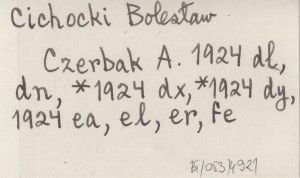 Cichocki Bolesław
Czerbak A. 1924 dł,
dn, *1924 dx, *1924 dy,
1924 ea, el, er, fe